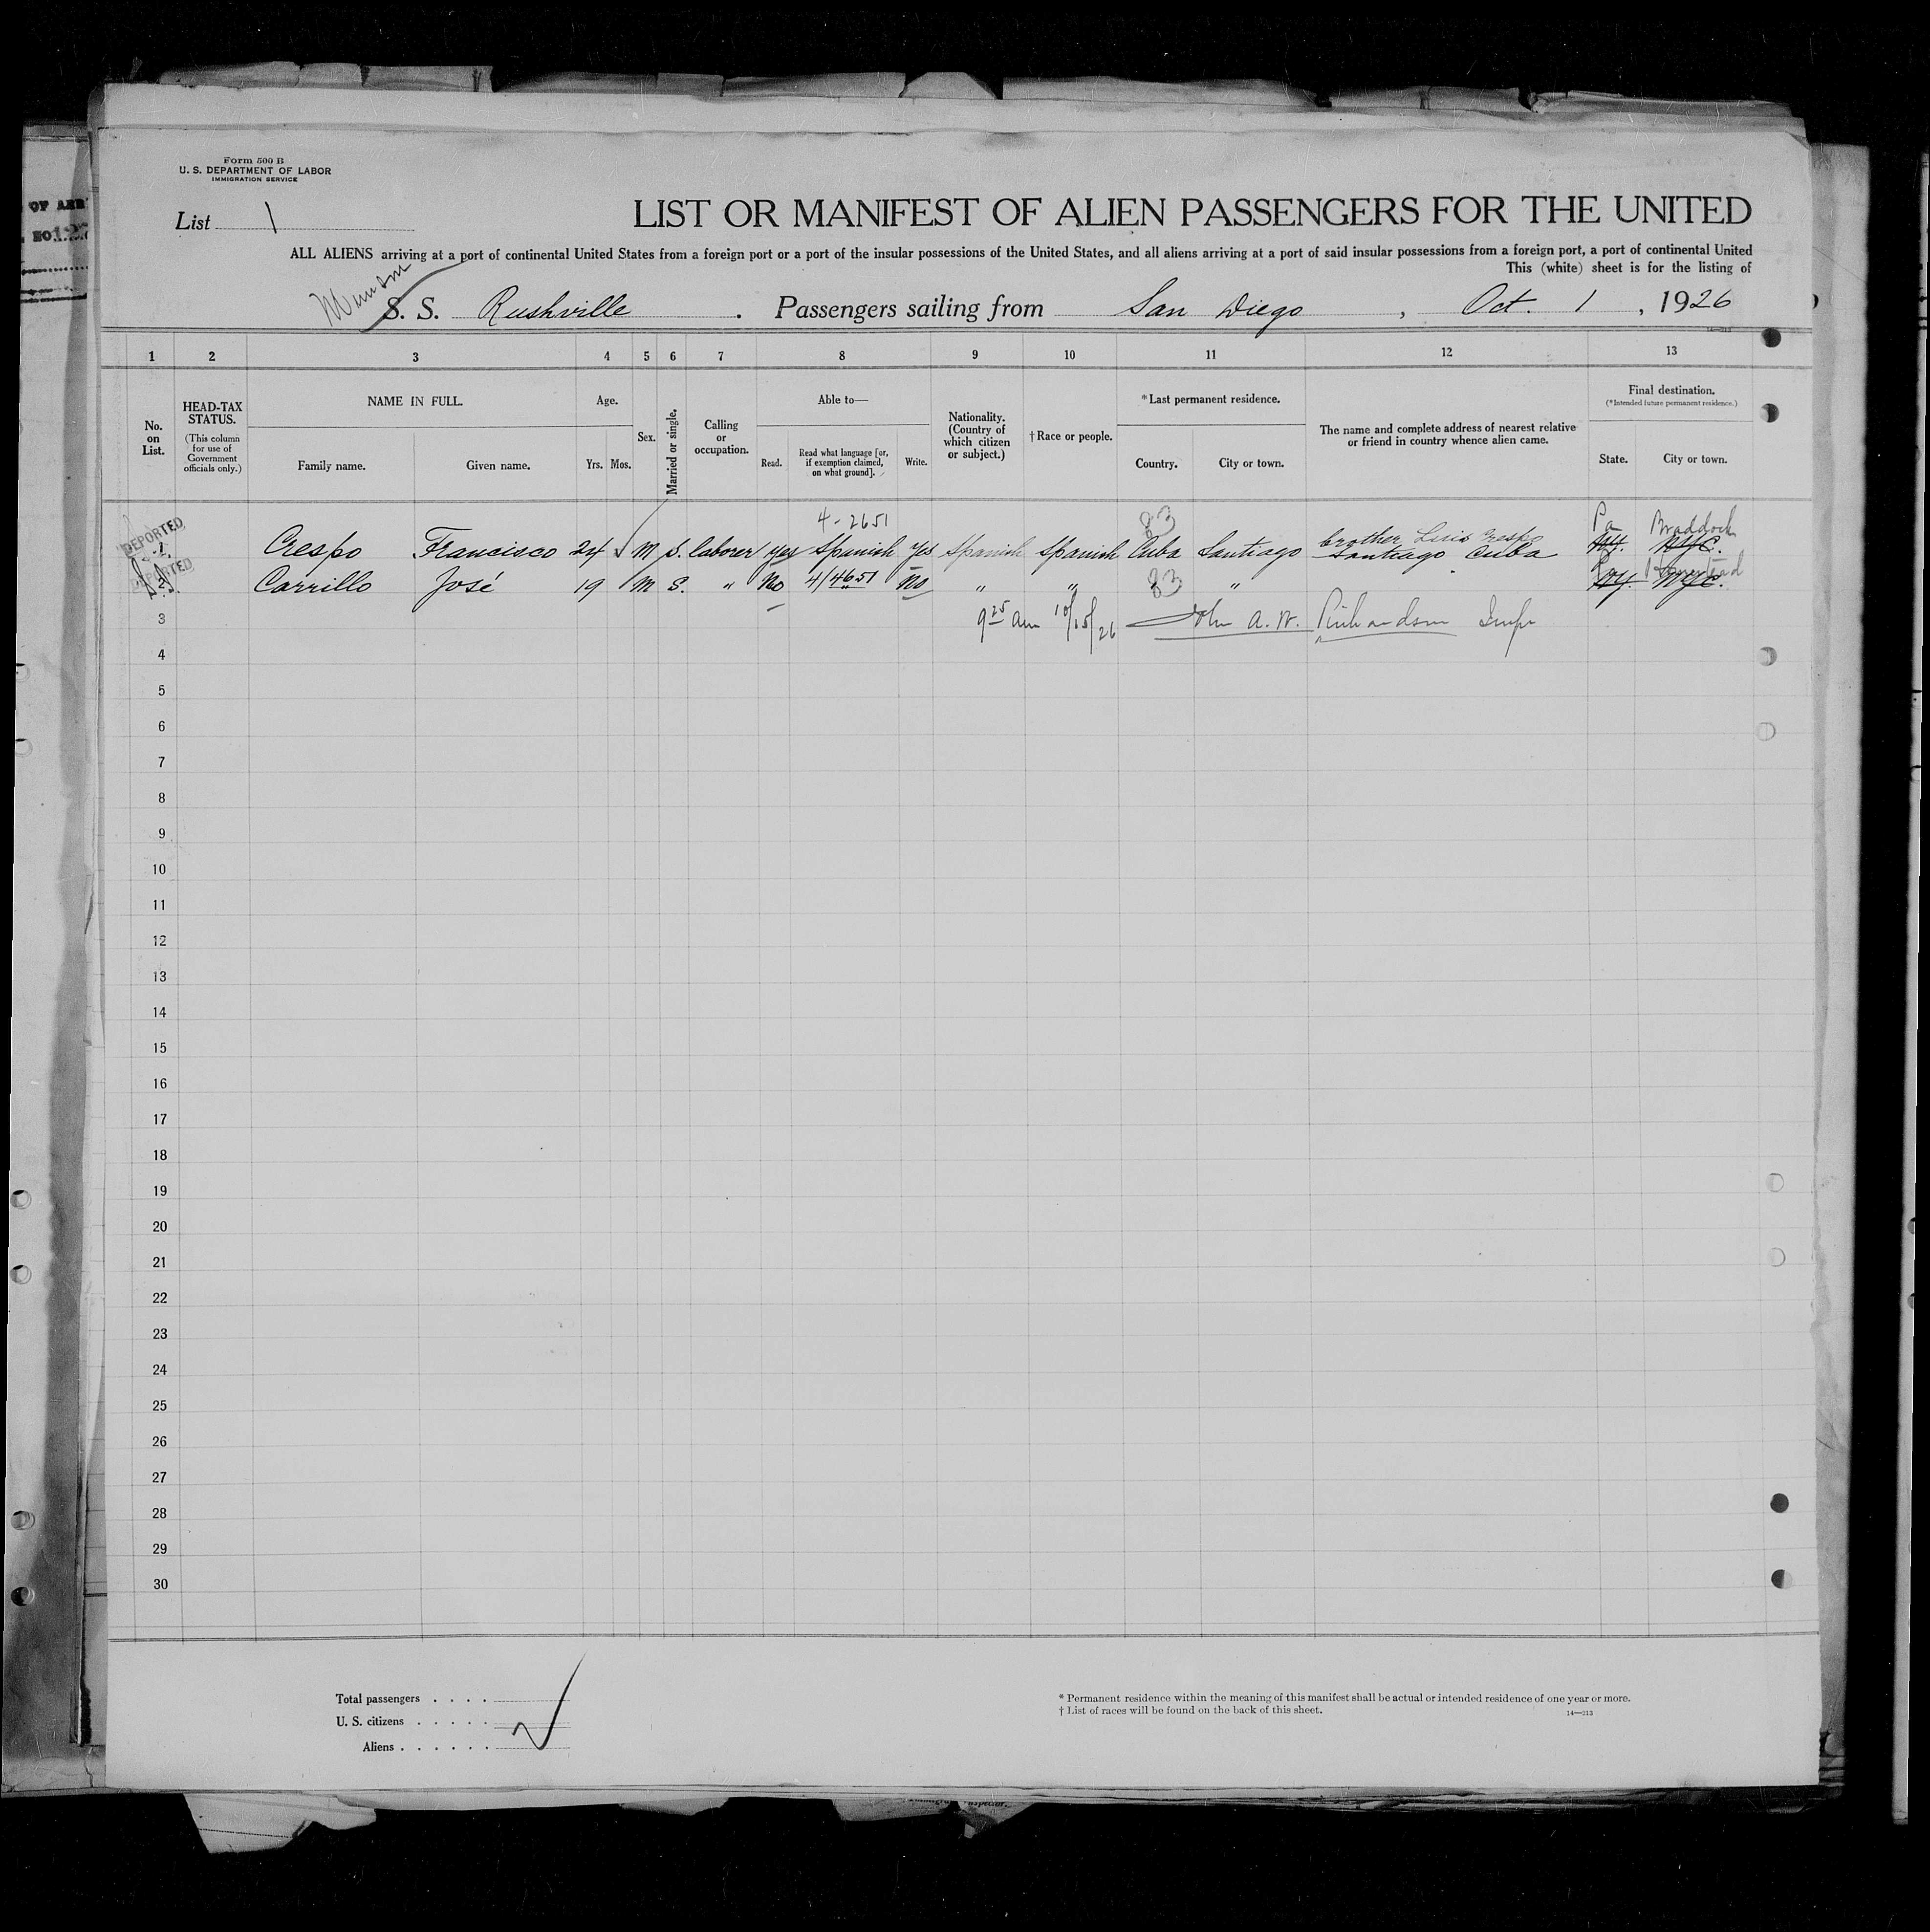 OF ARR
NO 127
Form 500 B
U. S. DEPARTMENT OF LABOR
IMMIGRATION SERVICE
List 1
LIST OR MANIFEST OF ALIEN PASSENGERS FOR THE UNITED
ALL ALIENS arriving at a port of continental United States from a foreign port or a port of the insular possessions of the United States, and all aliens arriving at a port of said insular possessions from a foreign port, a port of continental United
This (white) sheet is for the listing of
Munson
S. S. Rushville . Passengers sailing from San Diego , Oct. 1 , 1926
1 2 3 4 5 6 7 8 9 10 11 12 13
No. on List.
HEAD-TAX STATUS.
(This column for use of Government officials only.)
NAME IN FULL.
Family name. Given name.
Age.
Yrs. Mos.
Sex.
Married or single.
Calling or occupation.
Able to—
Read.
Read what language [or, if exemption claimed, on what ground].
Write.
Nationality. (Country of which citizen or subject.)
†Race or people.
*Last permanent residence.
Country. City or town.
The name and complete address of nearest relative or friend in country whence alien came.
Final destination.
(*Intended future permanent residence.)
State. City or town.
4-2651 83 Pa Braddock
DEPORTED
1 Crespo Francisco 24 M S. laborer yes Spanish Yes Spanish Spanish Cuba Santiago brother Luis Crespo Santiago Cuba N.Y. N.Y.C.
DEPORTED
2 Carrillo José 19 M S. " No 4/4651 No " " " 83 " Pa Homestead N.Y. N.Y.C.
3 9 25 am 10/15/26 John A. W. Richardson Inspr
4
5
6
7
8
9
10
11
12
13
14
15
16
17
18
19
20
21
22
23
24
25
26
27
28
29
30
Total passengers . . . .
U. S. citizens . . . . .
Aliens . . . . . .
* Permanent residence within the meaning of this manifest shall be actual or intended residence of one year or more.
† List of races will be found on the back of this sheet.
14—213